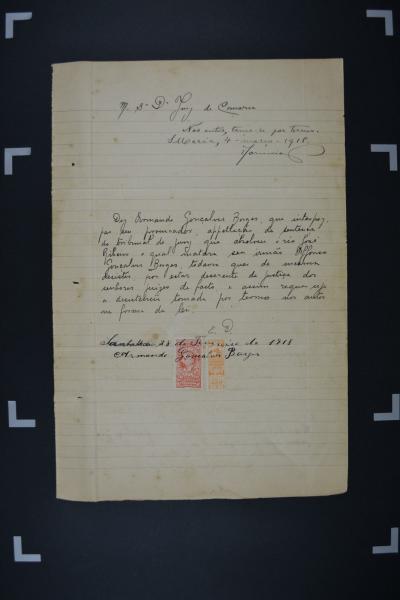 M. Sr. Dr. Juiz de Comarca
Nos autos, tome-se por termo.
S. Maria, 4 - março - 1918.
Diz Armando Gonçalves Borges, que interpoz,
por seu procurador, appellação da sentença
do tribunal do jury que absolveu o réo José
Ribeiro o qual matara seu irmão
Gonçalves Borges, todavia quer de mesma
desistir, por estar descrente da justiça dos
senhores juizes de facto, e assim requer seja
a desistencia tomada por termo nos autos
na forma da lei.
E. D.
28 de Fevereiro de 1918
Armando Gonçalves Borges